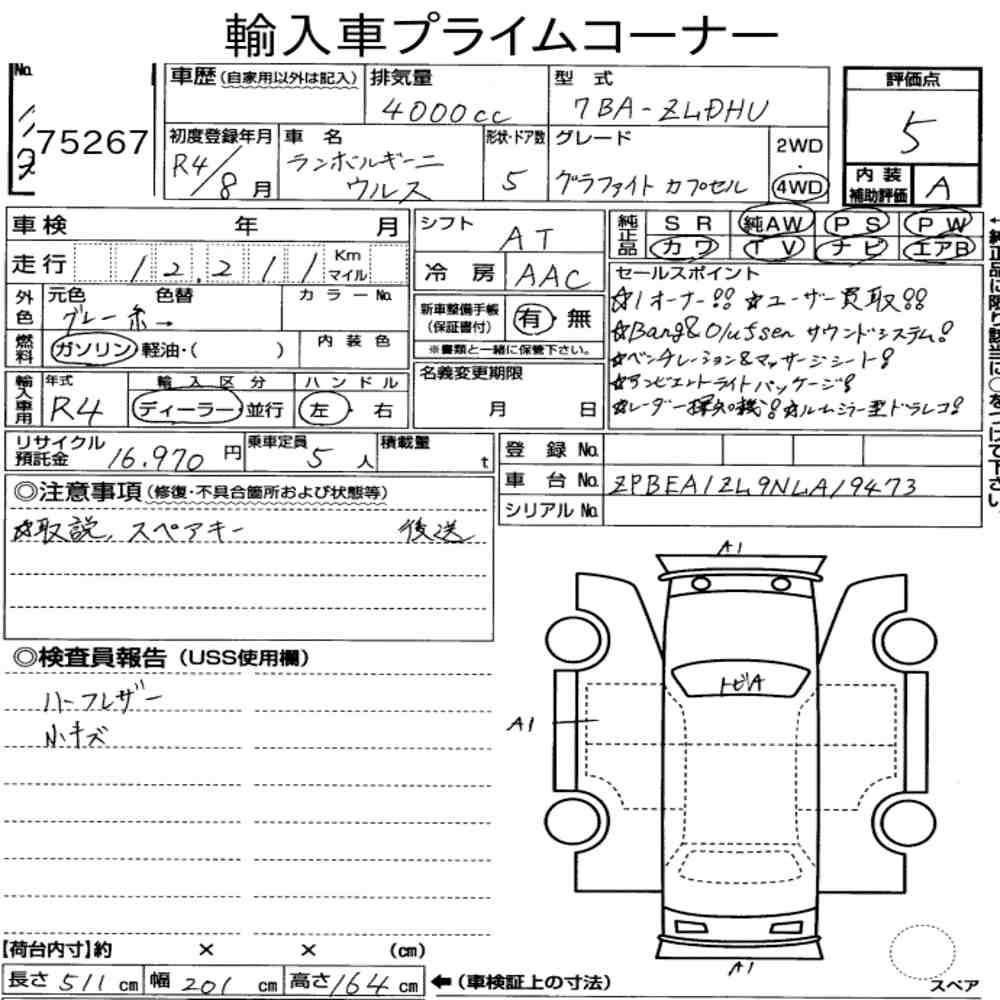 輸入車プライムコーナー
No. 75267
車歴(自家用以外は記入)
排気量 4000cc
型式 7BA-ZLDHU
評価点 5
初度登録年月 R4/8月
車名 ランボルギーニ ウルス
形状・ドア数 5
グレード グラファイト カプセル
2WD・4WD
内装補助評価 A
車検 年 月
シフト AT
純正品 SR 純AW PS PW
カワ TV ナビ エアB
走行 12,211 Km マイル
冷房 AAC
セールスポイント
☆1オーナー!! ☆ユーザー買取!!
☆Bang&Olufsen サウンドシステム!
☆ベンチレーション&マッサージシート!
☆アンビエントライトパッケージ!
☆レーダー探知機! ☆ルームミラー型ドラレコ!
←純正品に限り該当に○をつけて下さい。
外色 元色 グレー系→ 色替 カラーNo.
新車整備手帳(保証書付) 有・無
※書類と一緒に保管下さい。
燃料 ガソリン・軽油・( ) 内装色
名義変更期限 月 日
輸入車用 年式 R4 輸入区分 ディーラー・並行 ハンドル 左・右
リサイクル預託金 16,970円
乗車定員 5人
積載量 t
登録No.
車台No. ZPBEA1ZL9NLA19473
シリアルNo.
◎注意事項(修復・不具合箇所および状態等)
☆取説、スペアキー 後送
A1
◎検査員報告(USS使用欄)
ハーフレザー
小キズ
トビA
A1
A1
【荷台内寸】約 × × (cm)
長さ511cm 幅201cm 高さ164cm ←(車検証上の寸法)
スペア